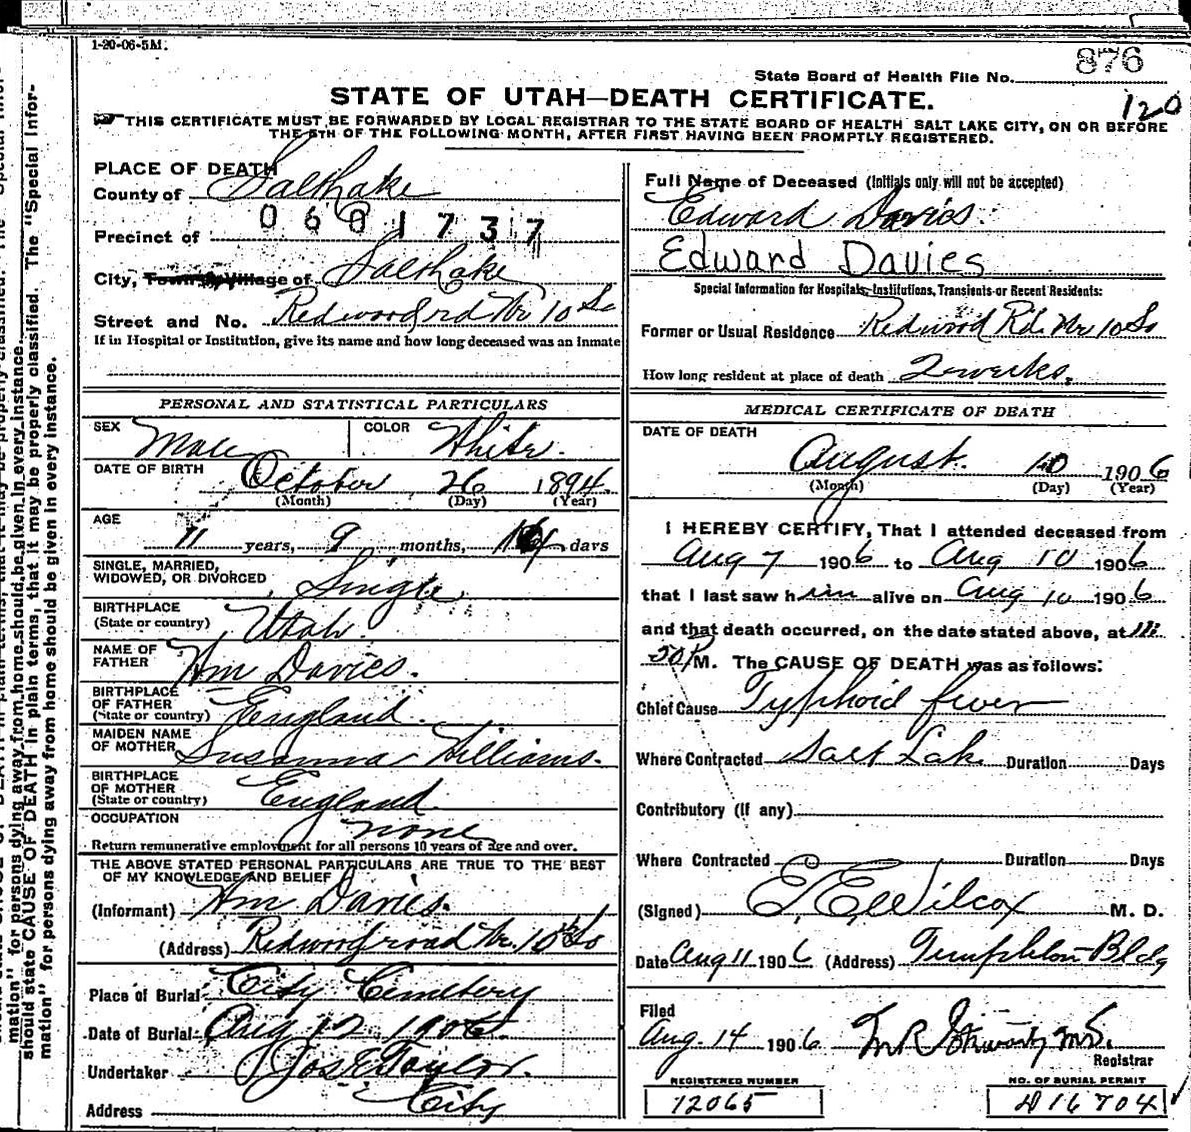 1-20-06-5M.
876
State Board of Health File No.
120
STATE OF UTAH—DEATH CERTIFICATE.
THIS CERTIFICATE MUST BE FORWARDED BY LOCAL REGISTRAR TO THE STATE BOARD OF HEALTH SALT LAKE CITY, ON OR BEFORE
THE 5TH OF THE FOLLOWING MONTH, AFTER FIRST HAVING BEEN PROMPTLY REGISTERED.
PLACE OF DEATH
County of Salt Lake
0601737
Precinct of
City, Town or Village of Salt Lake
Street and No. Redwood rd Nr 10 So
If in Hospital or Institution, give its name and how long deceased was an inmate
PERSONAL AND STATISTICAL PARTICULARS
SEX Male COLOR White.
DATE OF BIRTH
October 26 1894.
(Month) (Day) (Year)
AGE
11 years, 9 months, days
SINGLE, MARRIED,
WIDOWED, OR DIVORCED Single
BIRTHPLACE
(State or country) Utah.
NAME OF
FATHER Wm Davies.
BIRTHPLACE
OF FATHER
(State or country) England.
MAIDEN NAME
OF MOTHER Susanna Williams.
BIRTHPLACE
OF MOTHER
(State or country) England.
OCCUPATION
none
Return remunerative employment for all persons 10 years of age and over.
THE ABOVE STATED PERSONAL PARTICULARS ARE TRUE TO THE BEST
OF MY KNOWLEDGE AND BELIEF
(Informant) Wm Davies.
(Address) Redwood road Nr. 10th So
Place of Burial City Cemetery
Date of Burial Aug 12 1906.
Undertaker Jos E Taylor.
Address City
Full Name of Deceased (Initials only will not be accepted)
Edward Davies.
Edward Davies
Special Information for Hospitals, Institutions, Transients or Recent Residents:
Former or Usual Residence Redwood Rd. Nr 10 So
How long resident at place of death 2 weeks.
MEDICAL CERTIFICATE OF DEATH
DATE OF DEATH
August. 10 1906
(Month) (Day) (Year)
I HEREBY CERTIFY, That I attended deceased from
Aug 7 1906 to Aug 10 1906
that I last saw him alive on Aug 10 1906
and that death occurred, on the date stated above, at
50 P M. The CAUSE OF DEATH was as follows:
Chief Cause Typhoid fever
Where Contracted Salt Lake Duration Days
Contributory (if any)
Where Contracted Duration Days
(Signed) E. E. Wilcox M. D.
Date Aug 11 1906 (Address) Templeton Bldg
Filed
Aug. 14 1906
Registrar
REGISTERED NUMBER
12065
NO. OF BURIAL PERMIT
16704
mation" for persons dying away from home should be given in every instance.
should state CAUSE OF DEATH in plain terms, that it may be properly classified. The "Special Infor-
mation" for persons dying away from home should be given in every instance.